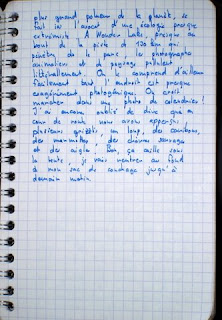 plus grand prédateur de la planète se
fait ici l'avocat d'une écologie presque
extrémiste. A Wonder Lake, presque au
bout de la piste de 130 km qui
pénètre dans le parc, les photographes
animaliers et de paysage pullulent
littéralement. On le comprend d'ailleurs
facilement tant l'endroit est presque
exagérément photogénique. On croit
marcher dans une photo de calendrier !
J'ai encore oublié de dire qu'en
cours de route nous avons aperçu
plusieurs grizzlis, un loup, des caribous,
des marmottes, des chèvres sauvages
et des aigles. Bon, ça caille sous
la tente, je vais rentrer au fond
de mon sac de couchage jusqu'à
demain matin.